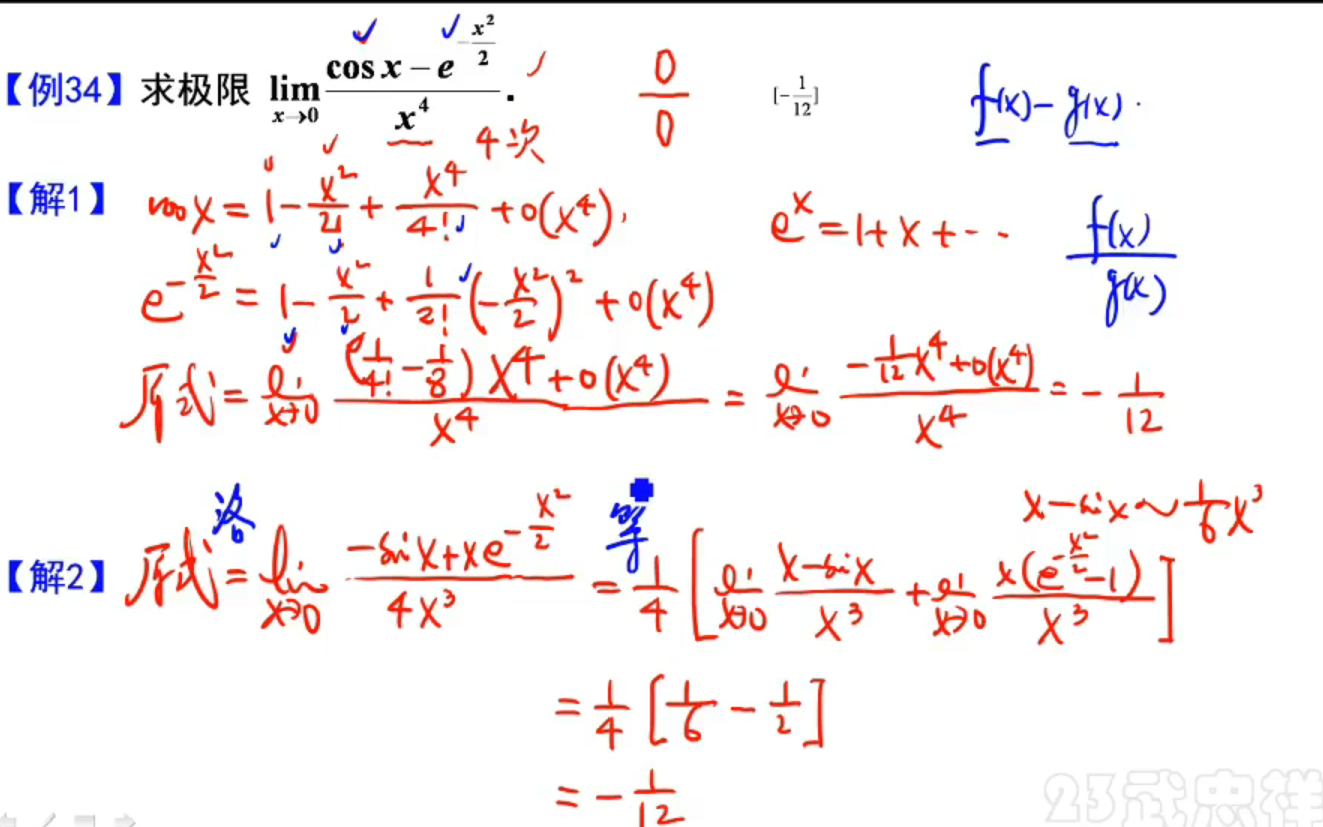 【例34】求极限 lim_{x→0} (cos x − e^{−x²/2}) / x⁴ . 0/0 [−1/12] f(x) − g(x).
4次
【解1】 cos x = 1 − x²/2! + x⁴/4! + o(x⁴), e^x = 1 + x + ⋯ f(x)/g(x)
e^{−x²/2} = 1 − x²/2 + 1/2! (−x²/2)² + o(x⁴)
原式 = lim_{x→0} ((1/4! − 1/8) x⁴ + o(x⁴)) / x⁴ = lim_{x→0} (−1/12 x⁴ + o(x⁴)) / x⁴ = −1/12
洛 等 x − sin x ~ 1/6 x³
【解2】 原式 = lim_{x→0} (−sin x + x e^{−x²/2}) / 4x³ = 1/4 [ lim_{x→0} (x − sin x)/x³ + lim_{x→0} x(e^{−x²/2} − 1)/x³ ]
= 1/4 [ 1/6 − 1/2 ]
= − 1/12
23武忠祥